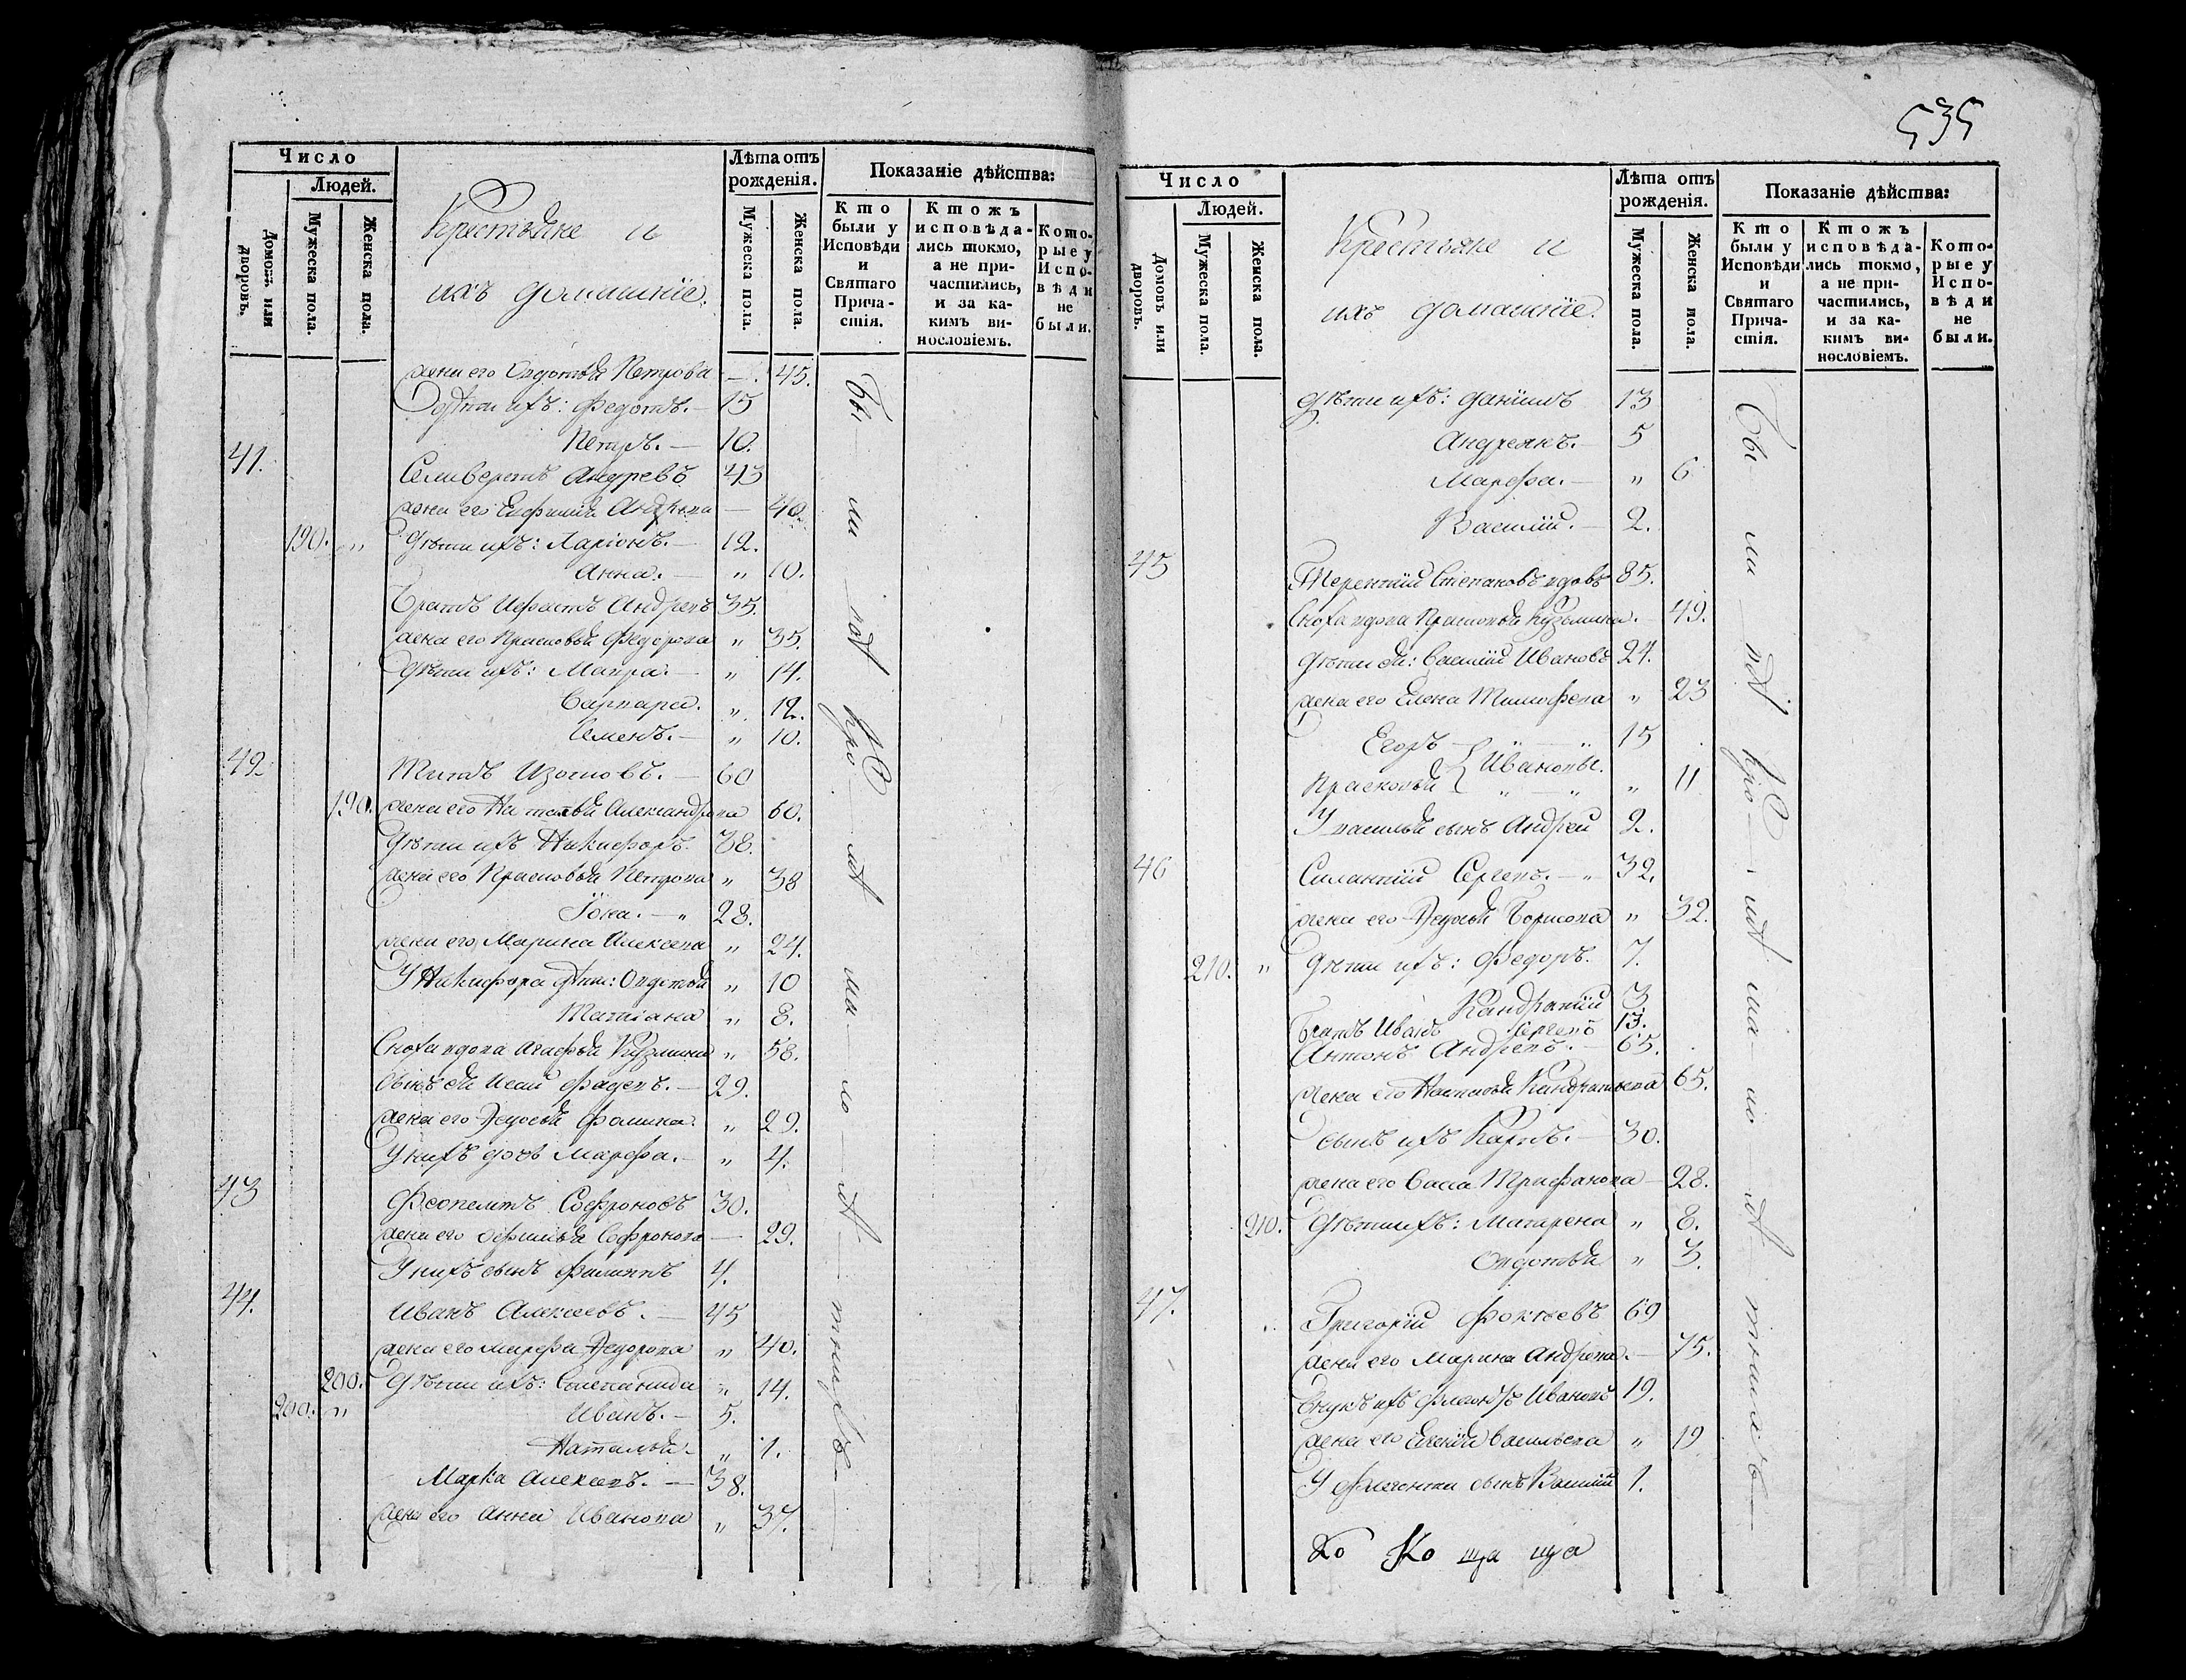 Число
Людей.
Домовъ или дворовъ.
Мужеска пола.
Женска пола.
Крестьяне и
ихъ домашніе.
Лѣта отъ рожденія.
Мужеска пола.
Женска пола.
Показаніе дѣйства:
Кто были у Исповѣди и Святаго Прича-стія.
Ктожъ исповѣда-лись токмо, а не при-частились, и за ка-кимъ ви-нословіемъ.
Кото-рые у Испо-вѣди не были.
жена его Овдотья Петрова — 45.
дѣти ихъ: Федотъ. — 15
Петръ. — 10.
41. Селиверстъ Андревъ 43
жена его — 40.
190. „ Дѣти ихъ: Ларіонъ. — 12.
Анна. — „ 10.
Братъ Андревъ 35.
жена его Прасковья Федорова „ 35.
Дѣти ихъ: Мавра. — „ 14.
Варвара. „ 12.
Семенъ. — „ 10.
42 Титъ Изотовъ. — 60
190. жена его Наталья Александрова 60.
Дѣти ихъ Никифоръ. 38.
жена его Прасковья Петрова „ 38
Іона. — „ 28.
жена его Марина Алексева „ 24.
У Никифора дѣти: Овдотья „ 10
Татіана „ 8.
Сноха вдова Агафья Кузмина „ 58.
Сынъ ея Исай Фадевъ. — 29.
жена его Федосья Фомина. „ 29.
У нихъ дочь Марфа. — „ 4.
43 Феопемтъ Софроновъ 30.
жена его Софронова — 29.
У нихъ сынъ Филиппъ 4.
44. Иванъ Алексеевъ. — 45
жена его Марфа Федорова „ 40.
200. Дѣти ихъ: Степанида „ 14.
200. „ Иванъ. — 5.
Наталья. „ 1.
Марка Алексевъ. — 38.
жена его Анна Иванова „ 37.
Бы — ли
535
Число
Людей.
Домовъ или дворовъ.
Мужеска пола.
Женска пола.
Крестьяне и
ихъ домашніе.
Лѣта отъ рожденія.
Мужеска пола.
Женска пола.
Показаніе дѣйства:
Кто были у Исповѣди и Святаго Прича-стія.
Ктожъ исповѣда-лись токмо, а не при-частились, и за ка-кимъ ви-нословіемъ.
Кото-рые у Испо-вѣди не были.
Дѣти ихъ: Данiилъ 13
Андреянъ. — 5
Марфа. — „ 6
Василій. — 2.
45 Терентій Степановъ вдовъ 85.
Сноха вдова Прасковья Кузьмина. 49.
Дѣти ея: Василій Ивановъ 24.
жена его Елена Тимофева „ 23
Егоръ — „ — „ 15
Прасковья } Ивановы. „ 11
У Василья сынъ Андрей 2.
46 Силантій Сергевъ. — „ 32.
жена его Федосья Борисова „ 32.
210. „ Дѣти ихъ: Федоръ. 7.
Кандратій 3.
Братъ Иванъ Сергевъ 13.
Антонъ Андревъ. — 65.
жена его Настасья Кандратьева 65.
Сынъ ихъ Карпъ. — 30.
жена его Васса Трифанова — 28.
210. Дѣти ихъ: Макрена „ 8.
Овдотья „ 3.
47. Григорій Фоктевъ 69
жена его Марина Андрева. — 75.
Внукъ ихъ Флегонтъ Ивановъ 19.
жена его Евгенія Васильева „ 19
У Флегонта сынъ Василій 1.
Бы — ли
Ко Ко ща ща